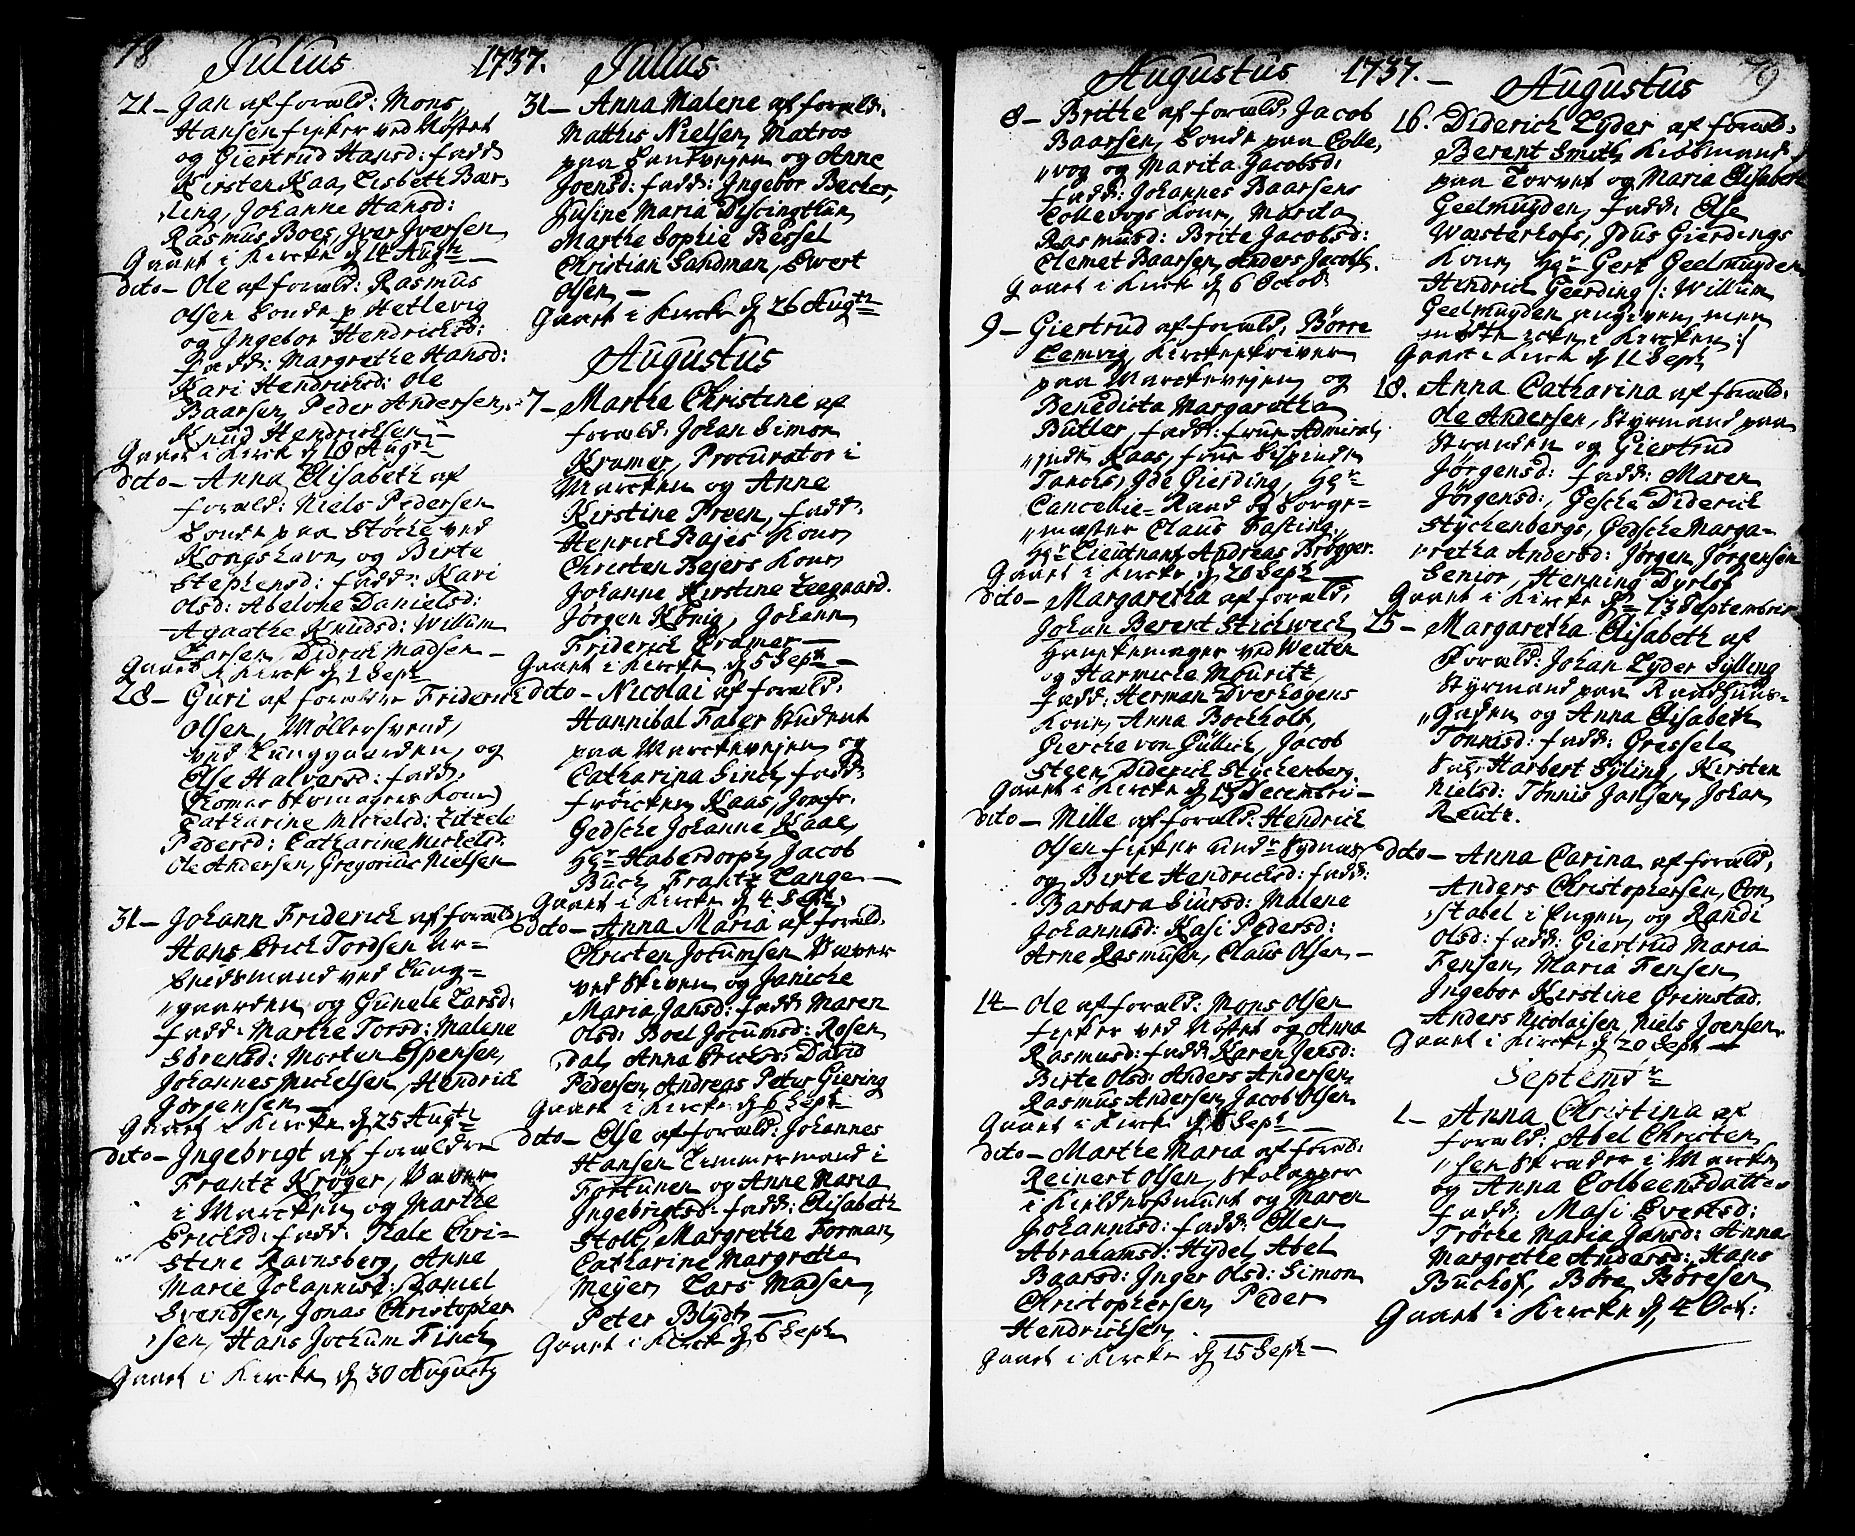 78
Julius 1737.
21 – Jan af foræld: Mons
Hansen fisker ved Nøstet
og Giertrud Hansd: fadd:
Kirsten Kaas, Lisbeth Bær,
ling, Johanne Hansd:
Rasmus Boes, Jver Jversen
Gaaet i Kircke d 14 Augti
dito – Ole af foræld: Rasmus
Olsen bonde p Hetlevig
og Ingebor Hendricksd:
fadd: Margrethe Hansd:
Kari Hendricksd: Ole
Baarsen, Peder Andersen,
Knud Hendricksen –
Gaaet i Kirck d 18 Augti
dito – Anna Elisabeth af
foræld: Niels Pedersen
bonde paa Støcke ved
Kongshavn og Birte
Stephensd: fadd: Kari
Olsd: Abelone Danielsd:
Agaathe Knudsd: Willum
Larsen, Didrich Madsen –
Gaaet i Kirck d 1 Sept
28 – Guri af forældre Friderich
Olsen, Møllersvend,
ved Lunggaarden, og
Else Halvorsd: fadd:
Catharine Mickelsd: Zitzele
Pedersd: Catharine Mickelsd:
Ole Andersen, Gregorius Nielsen
31 – Johann Friderich af foræld:
Hans Erich Tordsen Ar=
beidsmand ved Lung=
gaarden og Gunele Larsd:
fadd: Marthe Torsd: Malene
Sørensd: Morten Espensen,
Johannes Mickelsen, Hendrich
Jørgensen
Gaaet i Kircke d 25 Augti
dito – Ingebrigt af forældre
Frantz Krøger, Væver
i Marcken og Marthe
Ericksd: fadd: Kale Chri=
stine Ravnsberg, Anne
Marie Johannisd: Daniel
Svendsen, Jonas Christopher
sen, Hans Jochum Finck
Gaaet i Kircke d 30 Augusty
Julius
31 – Anna Malene af foræld:
Mattis Nielsen, Matros
paa Sandvigen og Anne
Joensd: fadd: Ingebor Becker,
Susine Maria Discingthun
Marthe Sophie Bessel
Christian Sandman, Evert
Olsen –
Gaaet i Kircke d 26 Augti
Augustus
7 – Marthe Christine af
foræld: Johan Simon
Kramer, Procurator i
Marcken og Anne
Kirstine Preen, fadd:
Henrich Bajes Kone
Christen Bejers Kone
Johanne Kirstine Zeegaard.
Jørgen König, Johann
Friderich Cramer –
Gaaet i Kircke d 5 Sept –
dito – Nicolai af foræld:
Hannibal Faber Student
paa Marckevejen og
Catharina Finck, fadd:
frøicken Kaas, Jomfr:
Gedsche Johanne Kaae,
Hr Haberdorph, Jacob
Buck, Frantz Lange –
Gaaet i Kircke d 4 Sept:
dito – Anna Maria af foræld:
Christen Jocumsen Væver
ved Skiven og Janicke
Maria Jansd: fadd: Maren
Olsd: Boel Jocumsd: Rosen
dal, Anna Ericksd: David
Pedersen, Andreas Petter Giering
Gaaet i Kircke d 6 Sept:
dito – Else af foræld: Johannes
Hansen Timmermand i
Fortunen og Anne Maria
Ingebrigtsd: fadd: Elisabeth
Stolt, Margrethe Forman,
Catharine Margrethe
Meyer, Lars Madsen,
Peter Blydt –
Gaaet i Kirck d 6 Sept
Augustus 1737. –
8 – Brithe af foræld: Jacob
Baarsen, bonde paa Colle,
„vog og Marita Jacobsd:
fadd: Johannes Baarsens
Collevogs Kone, Marita
Rasmusd: Brite Jacobsd:
Clemet Baarsen, Anders Jacobs.
Gaaet i Kirck d 6 Octob
9 – Giertrud af foræld: Børre
Lemvig, Kirckeskriver
paa Marckevejen og
Benedicta Margaretha
Butler, fadd: frue Admiral,
„inde Kaas, frue Bispinde
Tanchs, Ide Gierding, Hr
Cancellie-Raad og Borge=
„mester Claus Fasting,
Hr Lieutnant Andreas Brøgger.
Gaaet i Kircke d 20 Sept
dito – Margaretha af foræld:
Johan Berent Stickweck
Handskemager ved Weiten
og Harmicke Mouritz
fadd: Herman Dverhagens
Kone, Anna Bockholt,
Giercke von Güllich, Jacob
Steen, Diderich Styckenberg.
Gaaet i Kircke d 19 Decembri –
dito – Mille af foræld: Hendrick
Olsen fisker undr Lydnus
og Birte Hendricksd: fadd:
Barbara Siursd: Malene
Johannisd: Kasi Pedersd:
Arne Rasmusen, Claus Olsen –
14 – Ole af foræld: Mons Olsen
fisker ved Nøstet og Anna
Rasmusd: fadd: Karen Jensd:
Birte Olsd: Anders Andersen,
Rasmus Andersen, Jacob Olsen
Gaaet i Kirck d 6 Sept –
dito – Marthe Maria af foræld:
Reinert Olsen, Skolapper
i Kieldersmuuet og Maren
Johannisd: fadd: Ellen
Abrahamsd: Hydel, Abel
Baarsd: Inger Olsd: Simon
Christophersen, Peder
Hendricksen,
Gaaet i Kircke d 15 Sept –
79
Augustus
16. Diderich Lyder af foræld:
Berent Smith, Kiøbmand
paa Torvet og Maria Elisabeth
Geelmuyden, fadd: Else
Wæsterhofs, Idus Gierdings
Kone, Hr Gert Geelmuyden
Hendrick Geerding /: Willum
Geelmuyden angiven, men
mødte icke i Kircken :/
Gaaet i Kirck d 11 Sept
18. Anna Catharina af foræld:
Ole Andersen, Styrmand paa
Stranden og Giertrud
Jørgensd: fadd: Maren
Jørgensd:, Gesche Diderich
Styckenbergs, Gedsche Marga=
„retha Andersd: Jørgen Jørgensen
Senior, Henning Dyrlof
Gaaet i Kircke d 13 Septembris
25 – Margaretha Elisabeth af
Foræld: Johan Lyder Sylling
Styrmand paa Raadhuus=
„Gaden og Anna Elisabeth
Tønnisd: fadd: Gressele
Harbert Syling, Kirsten
Nielsd: Tønnis Jansen, Johan
Reutz.
dito – Anna Carina af foræld:
Anders Christophersen, Con
stabel i Engen, og Randi
Olsd: fadd: Giertrud Maria
Fensen, Maria Fensen
Ingebor Kirstine Grimstad.
Anders Nicolaisen, Niels Joensen
Gaaet i Kircke d 20 Sept –
Septembr
1 – Anna Christina af
foræld: Abel Christen
„sen Skræder i Marcken
og Anna Colbeensdatter
fadd: Masi Evertsd:
Tröche Maria Jansd: Anna
Margrethe Andersd: Hans
Buchof, Børe Børesen
Gaaet i Kircke d, 4 Oct: